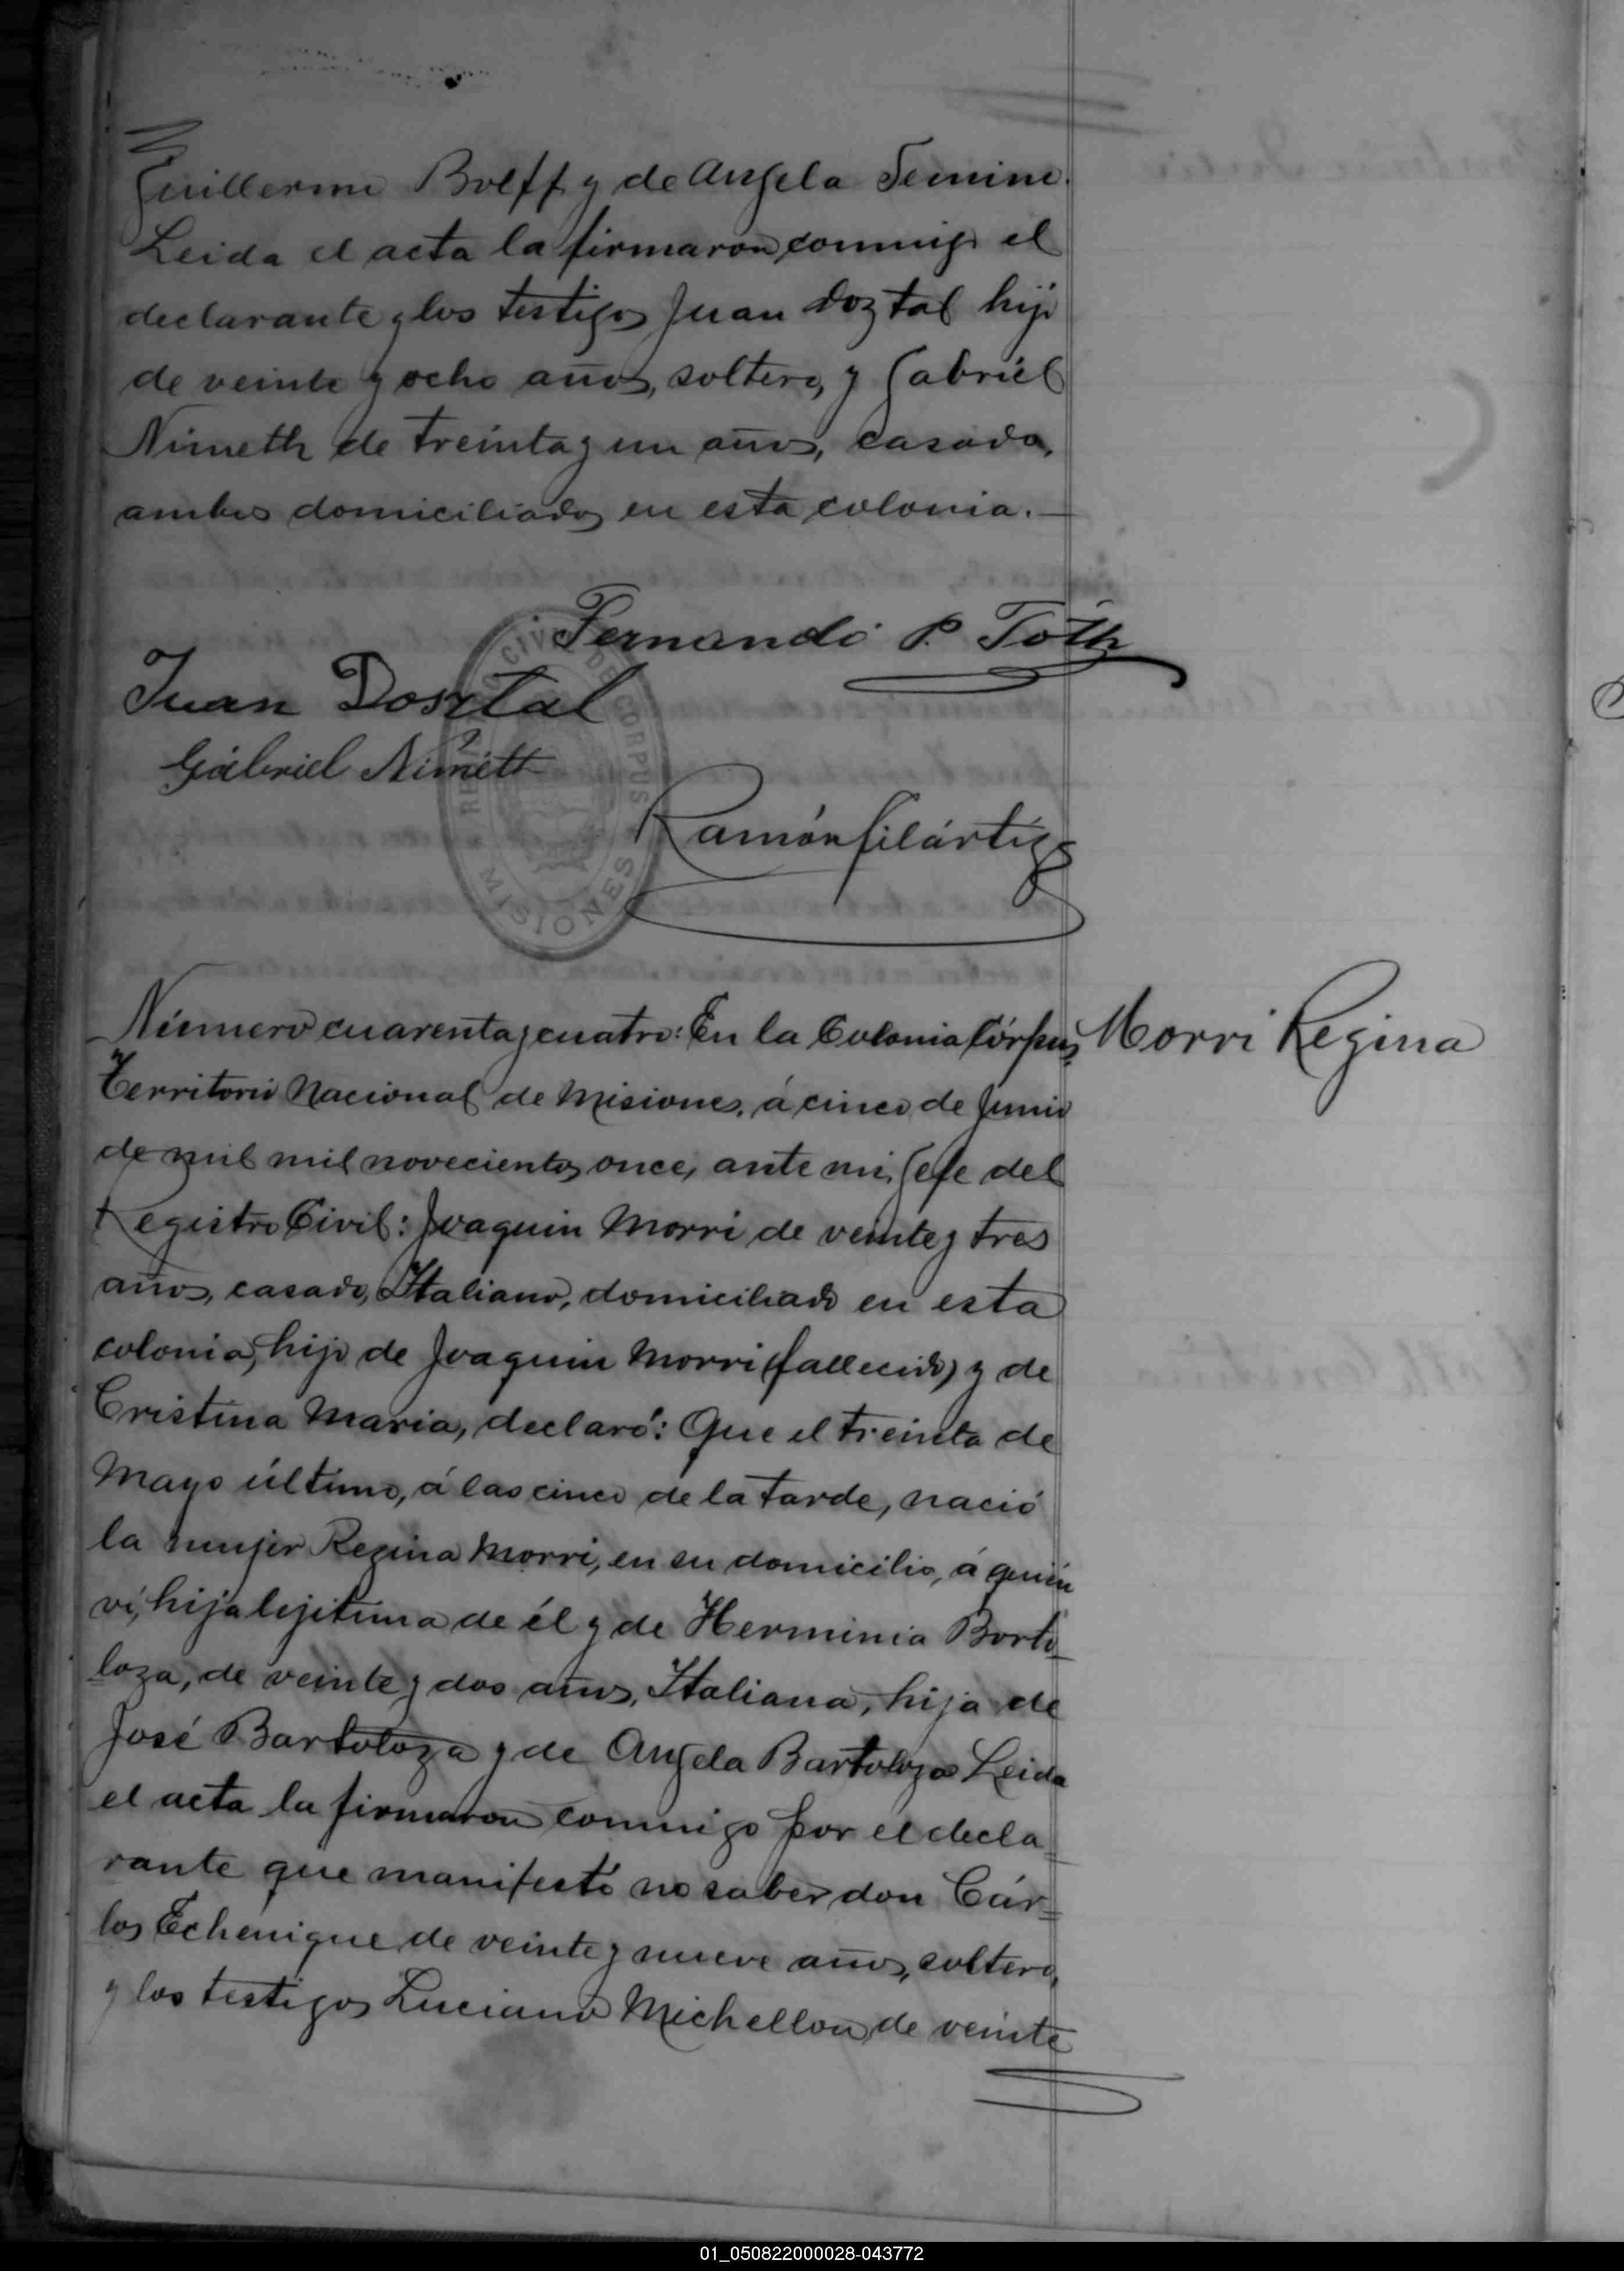 Guillermo Bolff y de Angela Semini.
Leida el acta la firmaron conmigo el
declarante y los testigos Juan Doztal hijo
de veinte y ocho años, soltero, y Gabriel
Nimeth de treinta y un años, casado,
ambos domiciliados en esta colonia.—
Fernando P. Tóth
Juan Dosztal
Gábriel Nimeth
REGISTRO CIVIL DE CORPUS
MISIONES
Ramón Filártiga
Número cuarenta y cuatro: En la Colonia Córpus,
Morri Regina
Territorio Nacional de Misiones, á cinco de Junio
de mil mil novecientos once, ante mi, Gefe del
Registro Civil: Joaquin Morri de veinte y tres
años, casado, Italiano, domiciliado en esta
colonia, hijo de Joaquin Morri (fallecido) y de
Cristina Maria, declaró: Que el treinta de
Mayo último, á las cinco de la tarde, nació
la mujer Regina Morri, en su domicilio, á quién
ví, hija lejitima de él y de Herminia Borto-
loza, de veinte y dos años, Italiana, hija de
José Bartoloza y de Angela Bartoloza Leida
el acta la firmaron conmigo por el decla-
rante que manifestó no saber don Cár=
los Echenique de veinte y nueve años, soltero,
y los testigos Luciano Michellon de veinte
01_050822000028-043772